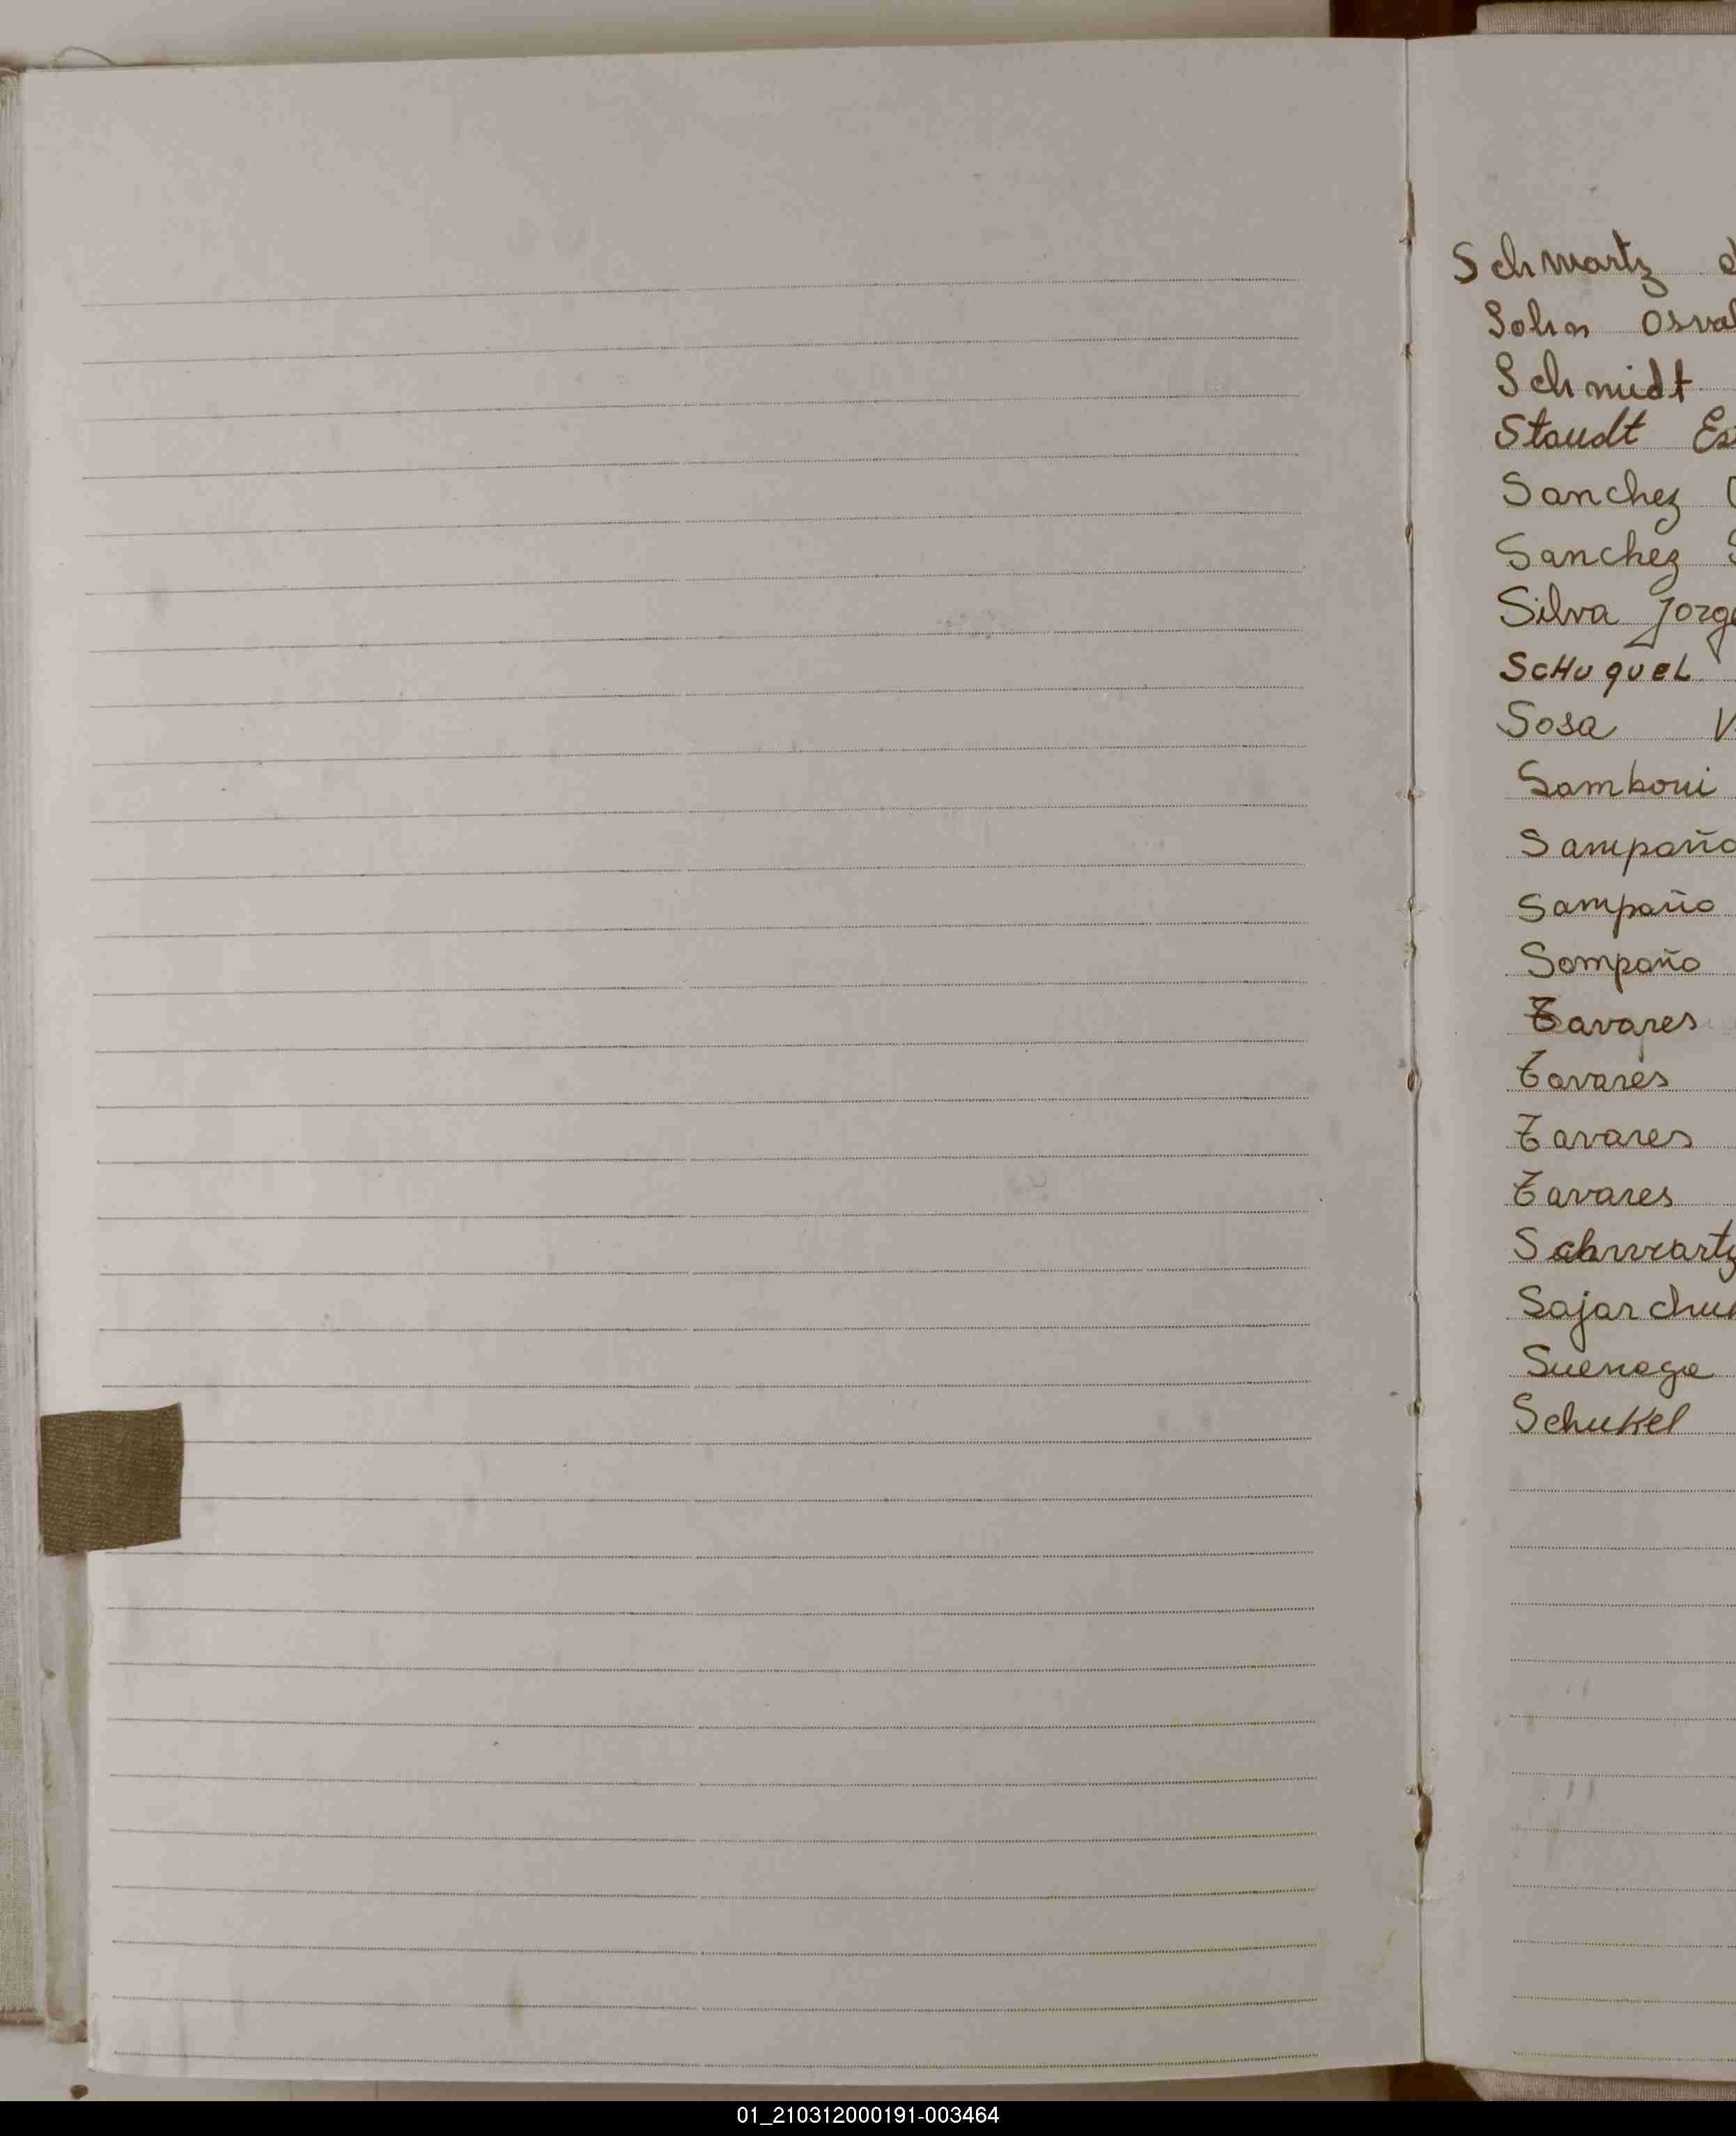 Schwartz
Sohn Osval
Schmidt
Staudt Es
Sanchez
Sanchez S
Silva Jorge
SCHUQUEL
Sosa V
Samboni
Sampaño
Sampaño
Sampaño
Tavares
Tavares
Tavares
Tavares
Schwartz
Sajarchuk
Suenaga
Schukel
01_210312000191-003464